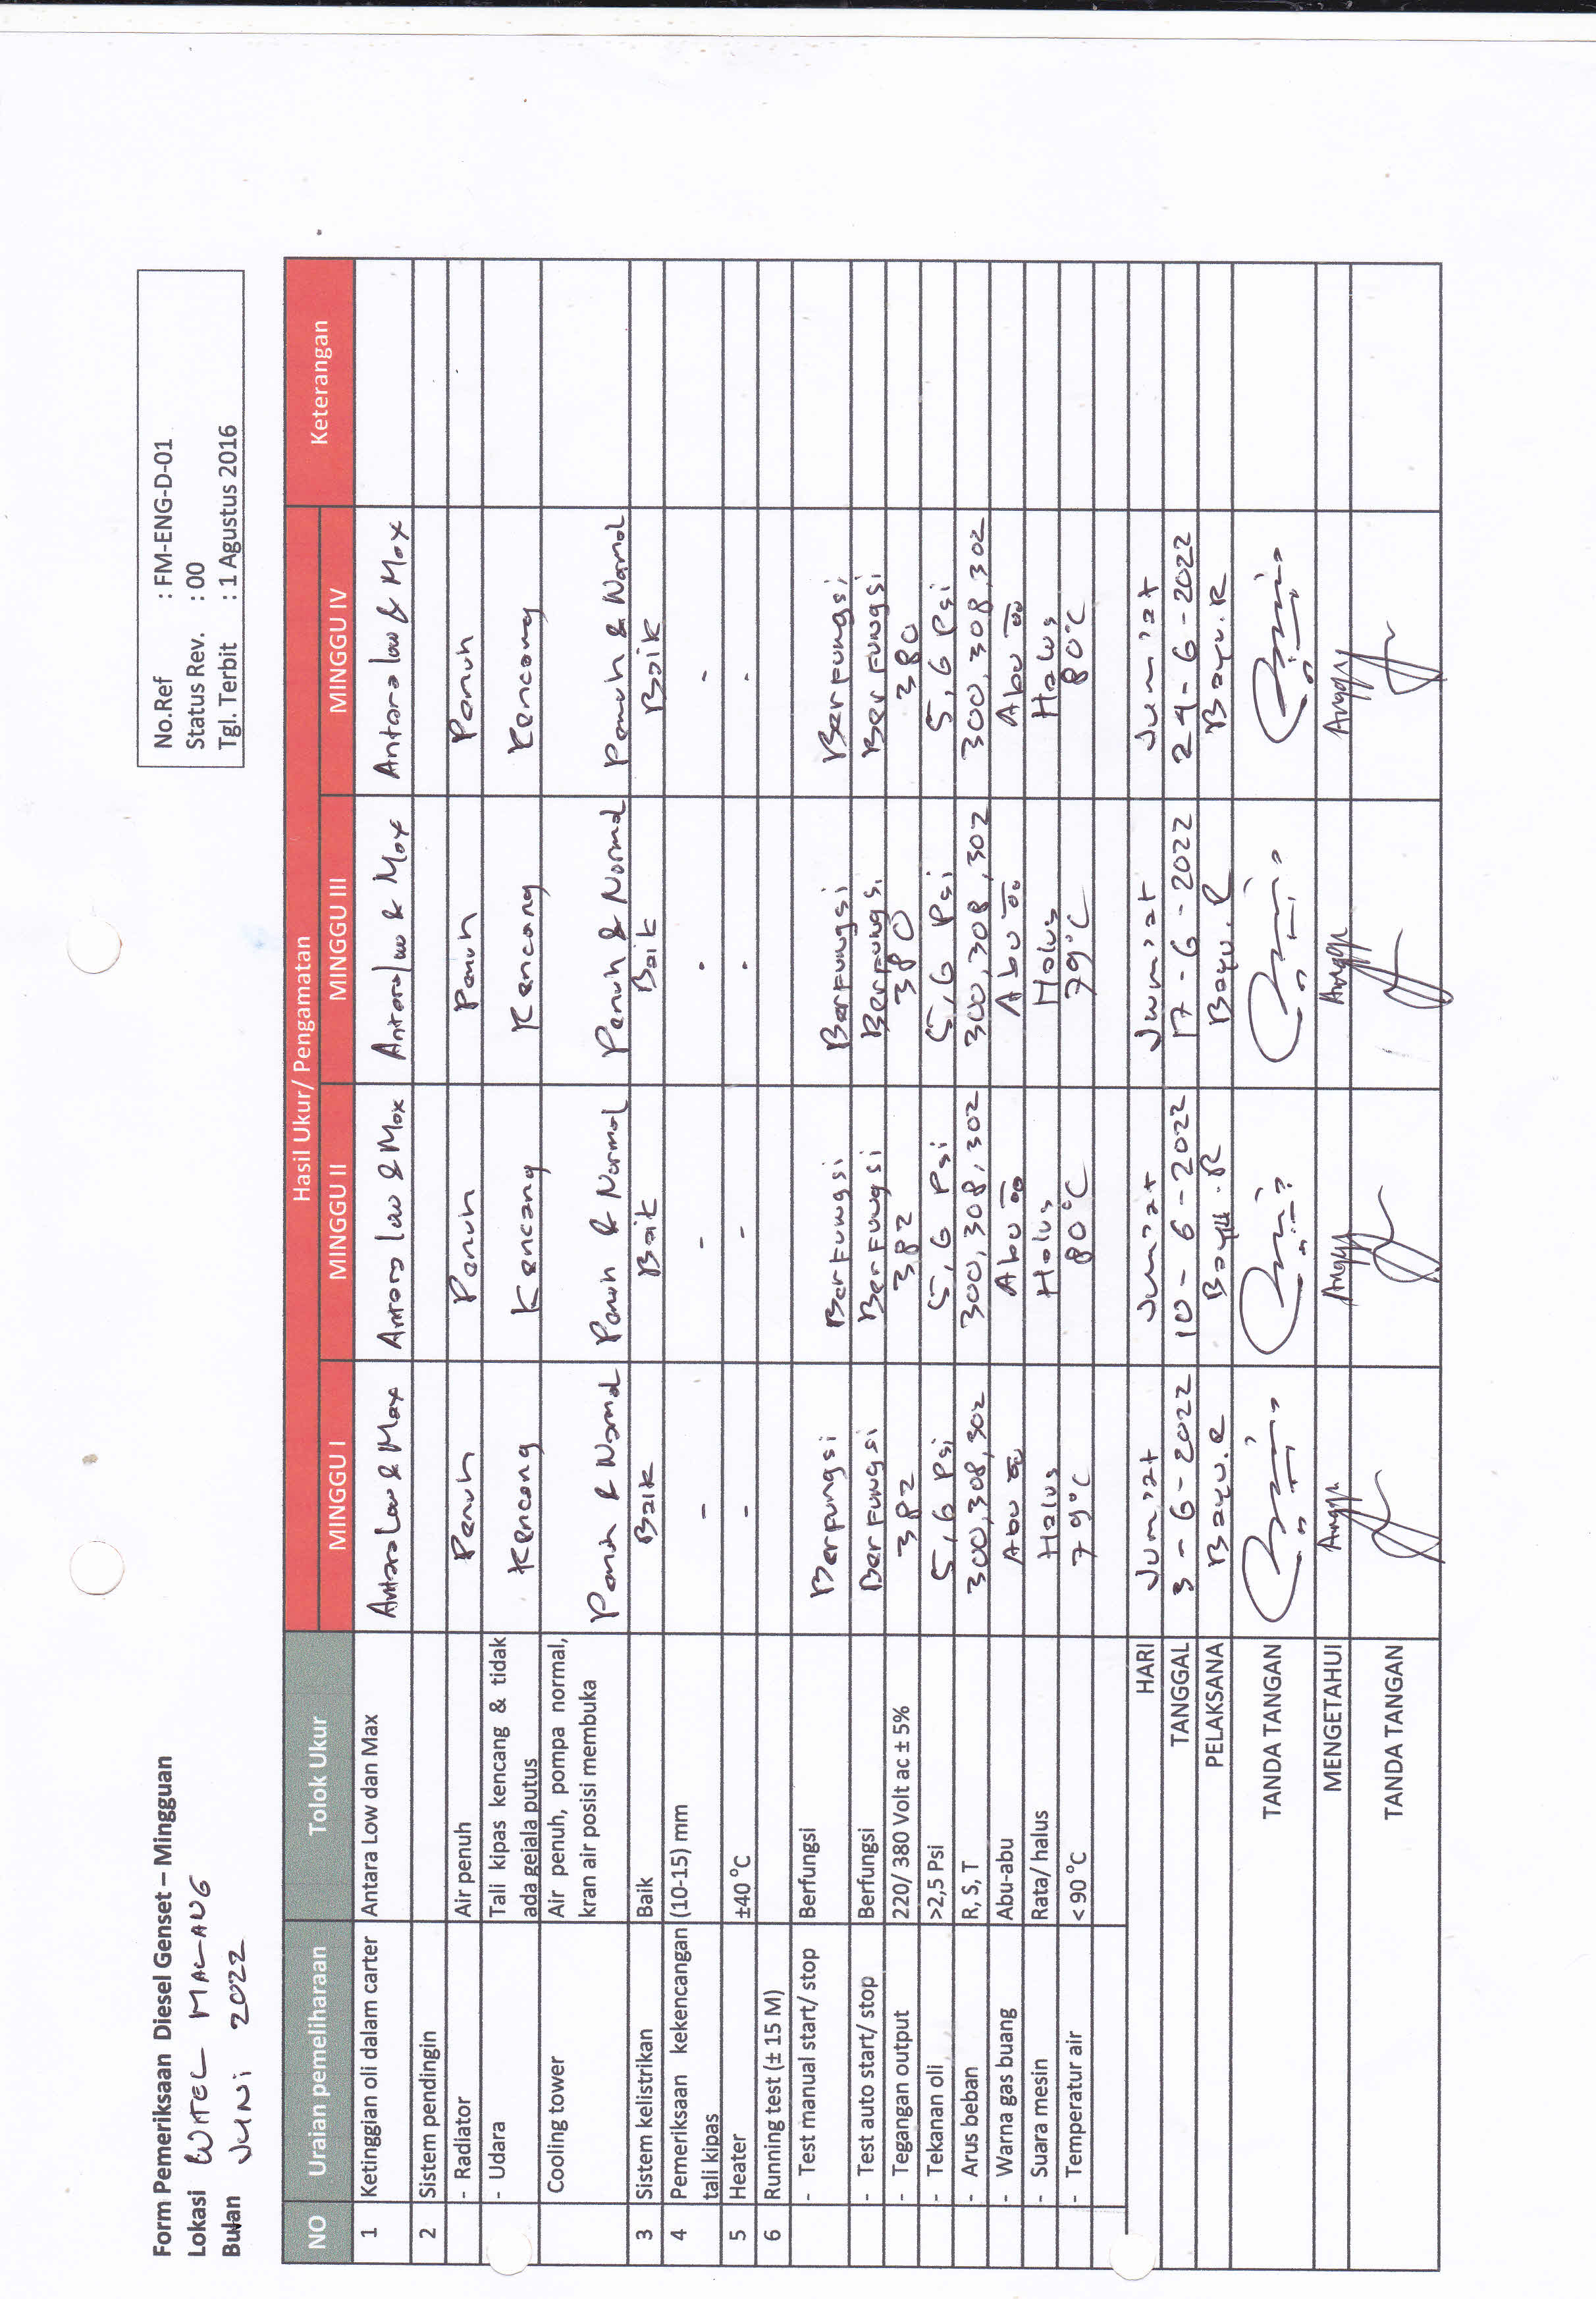 Form Pemeriksaan Diesel Genset – Mingguan
Lokasi WITEL MALANG
Bulan JUNI 2022
No.Ref : FM-ENG-D-01
Status Rev. : 00
Tgl. Terbit : 1 Agustus 2016
NO Uraian pemeliharaan Tolok Ukur Hasil Ukur/ Pengamatan Keterangan
MINGGU I MINGGU II MINGGU III MINGGU IV
1 Ketinggian oli dalam carter Antara Low dan Max Antara Low & Max Antara low & Max Antara low & Max Antara low & Max
2 Sistem pendingin
- Radiator Air penuh Penuh Penuh Penuh Penuh
- Udara Tali kipas kencang & tidak
ada gejala putus Kencang Kencang Kencang Kencang
Cooling tower Air penuh, pompa normal,
kran air posisi membuka Penuh & Normal Penuh & Normal Penuh & Normal Penuh & Normal
3 Sistem kelistrikan Baik Baik Baik Baik Baik
4 Pemeriksaan kekencangan (10-15) mm
tali kipas - - - -
5 Heater ±40 °C - - - -
6 Running test (± 15 M)
- Test manual start/ stop Berfungsi Berfungsi Berfungsi Berfungsi Berfungsi
- Test auto start/ stop Berfungsi Berfungsi Berfungsi Berfungsi Berfungsi
- Tegangan output 220/ 380 Volt ac ± 5% 382 382 380 380
- Tekanan oli >2,5 Psi 5,6 Psi 5,6 Psi 5,6 Psi 5,6 Psi
- Arus beban R, S, T 300,308,302 300,308,302 300,308,302 300,308,302
- Warna gas buang Abu-abu Abu Abu Abu Abu
- Suara mesin Rata/ halus Halus Halus Halus Halus
- Temperatur air < 90 °C 79°C 80°C 79°C 80°C
HARI Jum'at Jum'at Jum'at Jum'at
TANGGAL 3-6-2022 10-6-2022 17-6-2022 24-6-2022
PELAKSANA Bayu.R Bayu.R Bayu.R Bayu.R
TANDA TANGAN
MENGETAHUI Anggi Anggi Anggi Anggi
TANDA TANGAN